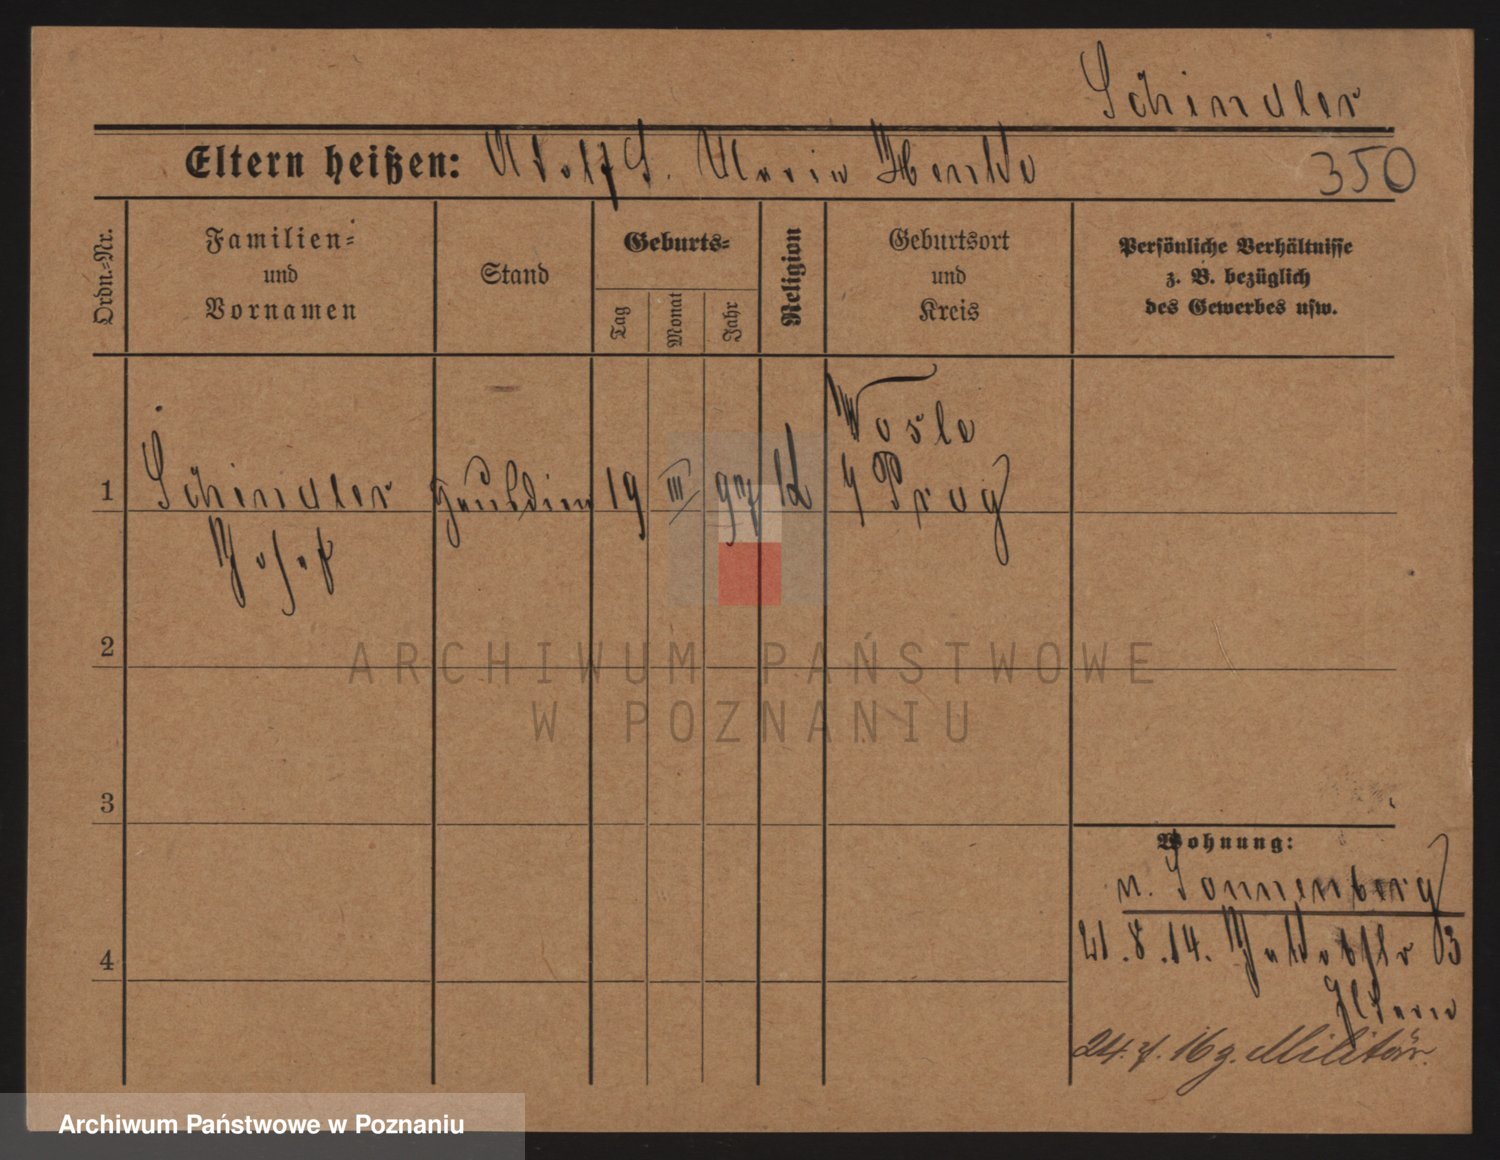 Schindler
Eltern heißen: Adolf S. Maria Henke
350
Ordn.-Nr.
Familien- und Vornamen
Stand
Geburts-
Tag
Monat
Jahr
Religion
Geburtsort und Kreis
Persönliche Verhältnisse z. B. bezüglich des Gewerbes usw.
1
Schindler
Hausdien
19
III
97
k
Josef
2
3
4
Wohnung:
n. Sonnenberg
21.8.14. Jakobstr 3
Eltern
24. 16 z. Militär.
ARCHIWUM PAŃSTWOWE
W POZNANIU
Archiwum Państwowe w Poznaniu